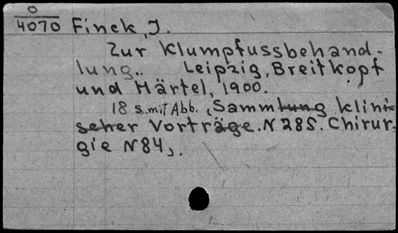 O
4070 Finck, J.
Zur Klumpfussbehand-
lung.. Leipzig, Breitkopf
und Härtel, 1900.
18 s. mit Abb. (Sammlung klini-
scher Vorträge. N 285. Chirur-
gie N 84).